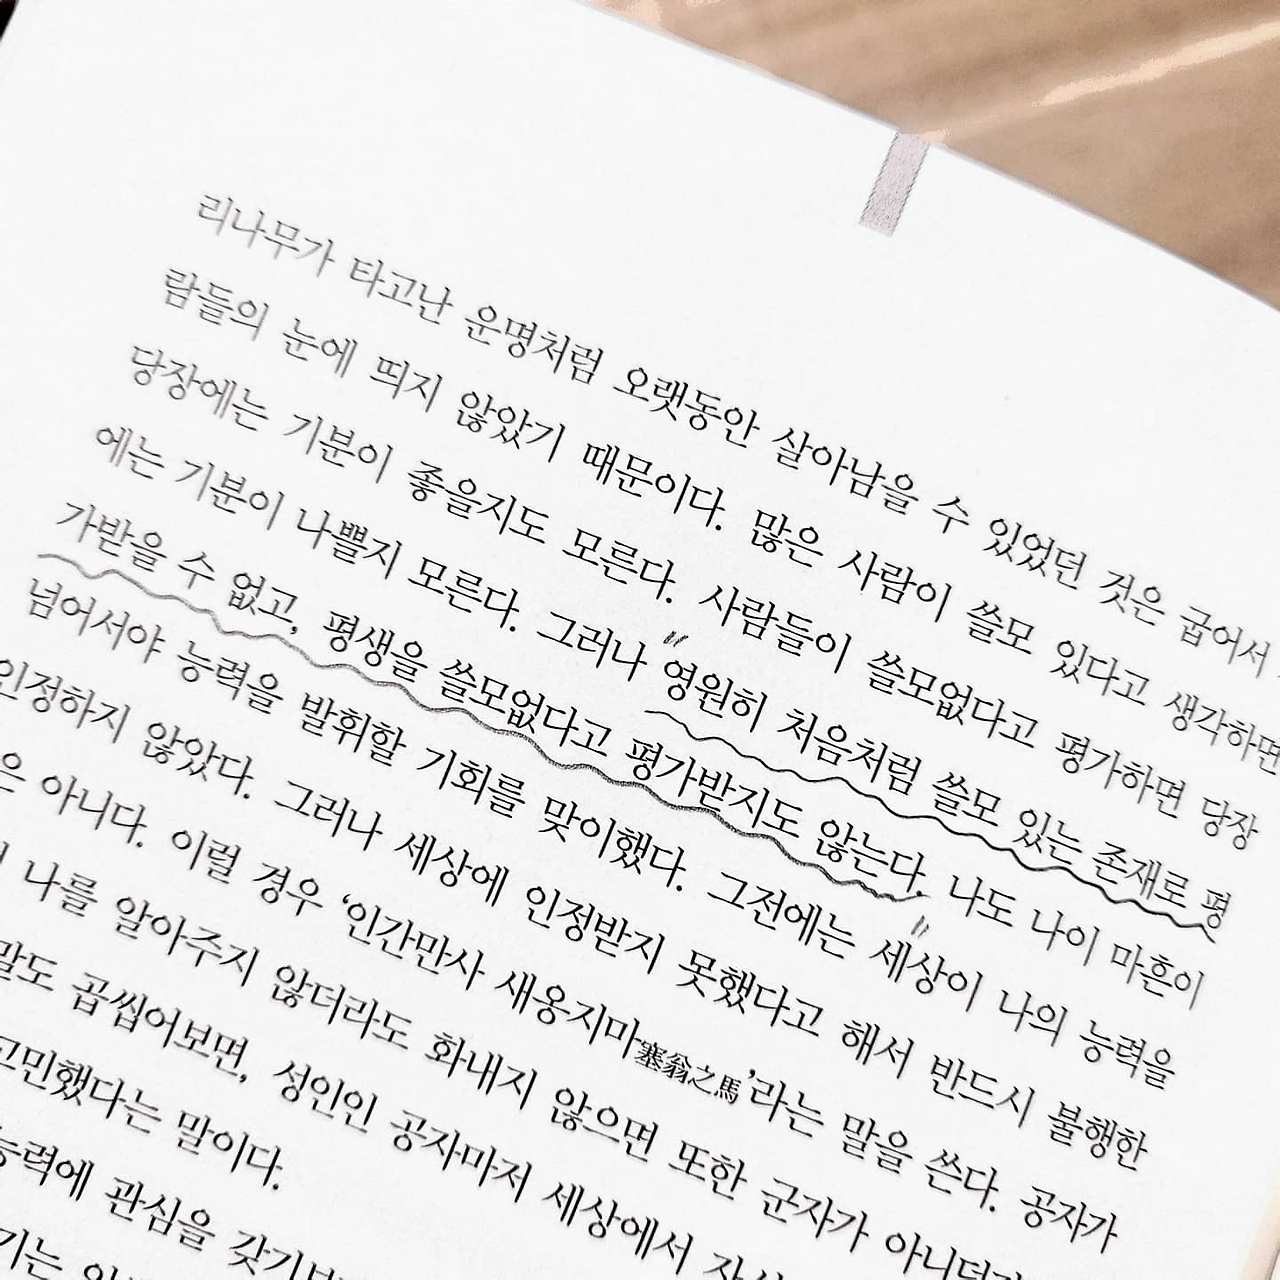 리나무가 타고난 운명처럼 오랫동안 살아남을 수 있었던 것은 굽어서
람들의 눈에 띄지 않았기 때문이다. 많은 사람이 쓸모 있다고 생각하면
당장에는 기분이 좋을지도 모른다. 사람들이 쓸모없다고 평가하면 당장
에는 기분이 나쁠지 모른다. 그러나 영원히 처음처럼 쓸모 있는 존재로 평
가받을 수 없고, 평생을 쓸모없다고 평가받지도 않는다. 나도 나이 마흔이
넘어서야 능력을 발휘할 기회를 맞이했다. 그전에는 세상이 나의 능력을
인정하지 않았다. 그러나 세상에 인정받지 못했다고 해서 반드시 불행한
은 아니다. 이럴 경우 ‘인간만사 새옹지마塞翁之馬’라는 말을 쓴다. 공자가
나를 알아주지 않더라도 화내지 않으면 또한 군자가
말도 곱씹어보면, 성인인 공자마저 세상에서
고민했다는 말이다.
능력에 관심을